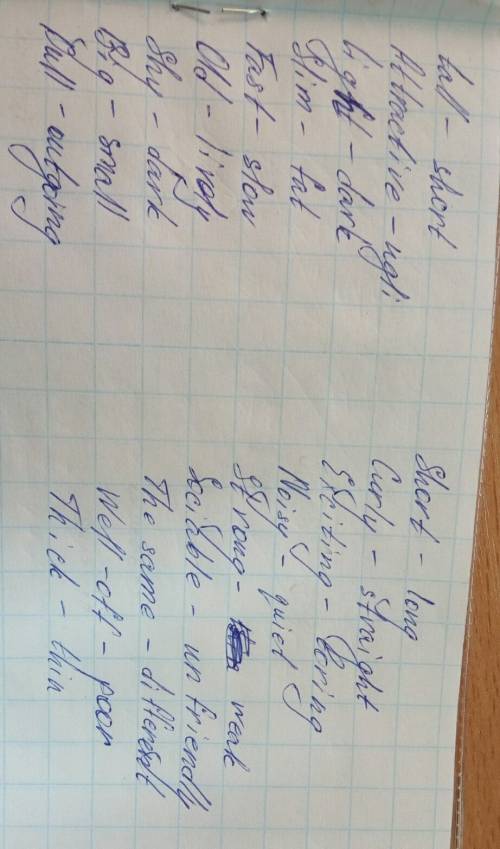 tall - short
Attractive - ugli
Light - dark
Slim - fat
Fast - slow
Old - lively
Shy - dark
Big - small
Dull - outgoing
Short - long
Curly - straight
Exciting - boring
Noisy - quiet
Strong - weak
Sociable - unfriendly
The same - different
Well-off - poor
Thick - thin